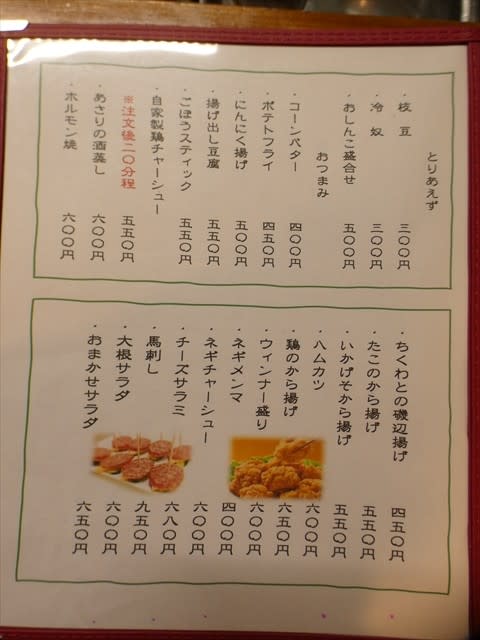 とりあえず
・枝豆 三〇〇円
・冷奴 三〇〇円
・おしんこ盛合せ 五〇〇円
おつまみ
・コーンバター 四〇〇円
・ポテトフライ 四五〇円
・にんにく揚げ 五〇〇円
・揚げ出し豆腐 五五〇円
・ごぼうスティック 五五〇円
・自家製鶏チャーシュー
※注文後二〇分程 五五〇円
・あさりの酒蒸し 六〇〇円
・ホルモン焼 六〇〇円
・ちくわとの磯辺揚げ 四五〇円
・たこのから揚げ 五五〇円
・いかげそから揚げ 五五〇円
・ハムカツ 六〇〇円
・鶏のから揚げ 六五〇円
・ウィンナー盛り 六〇〇円
・ネギメンマ 四〇〇円
・ネギチャーシュー 六〇〇円
・チーズサラミ 六八〇円
・馬刺し 九五〇円
・大根サラダ 六〇〇円
・おまかせサラダ 六五〇円